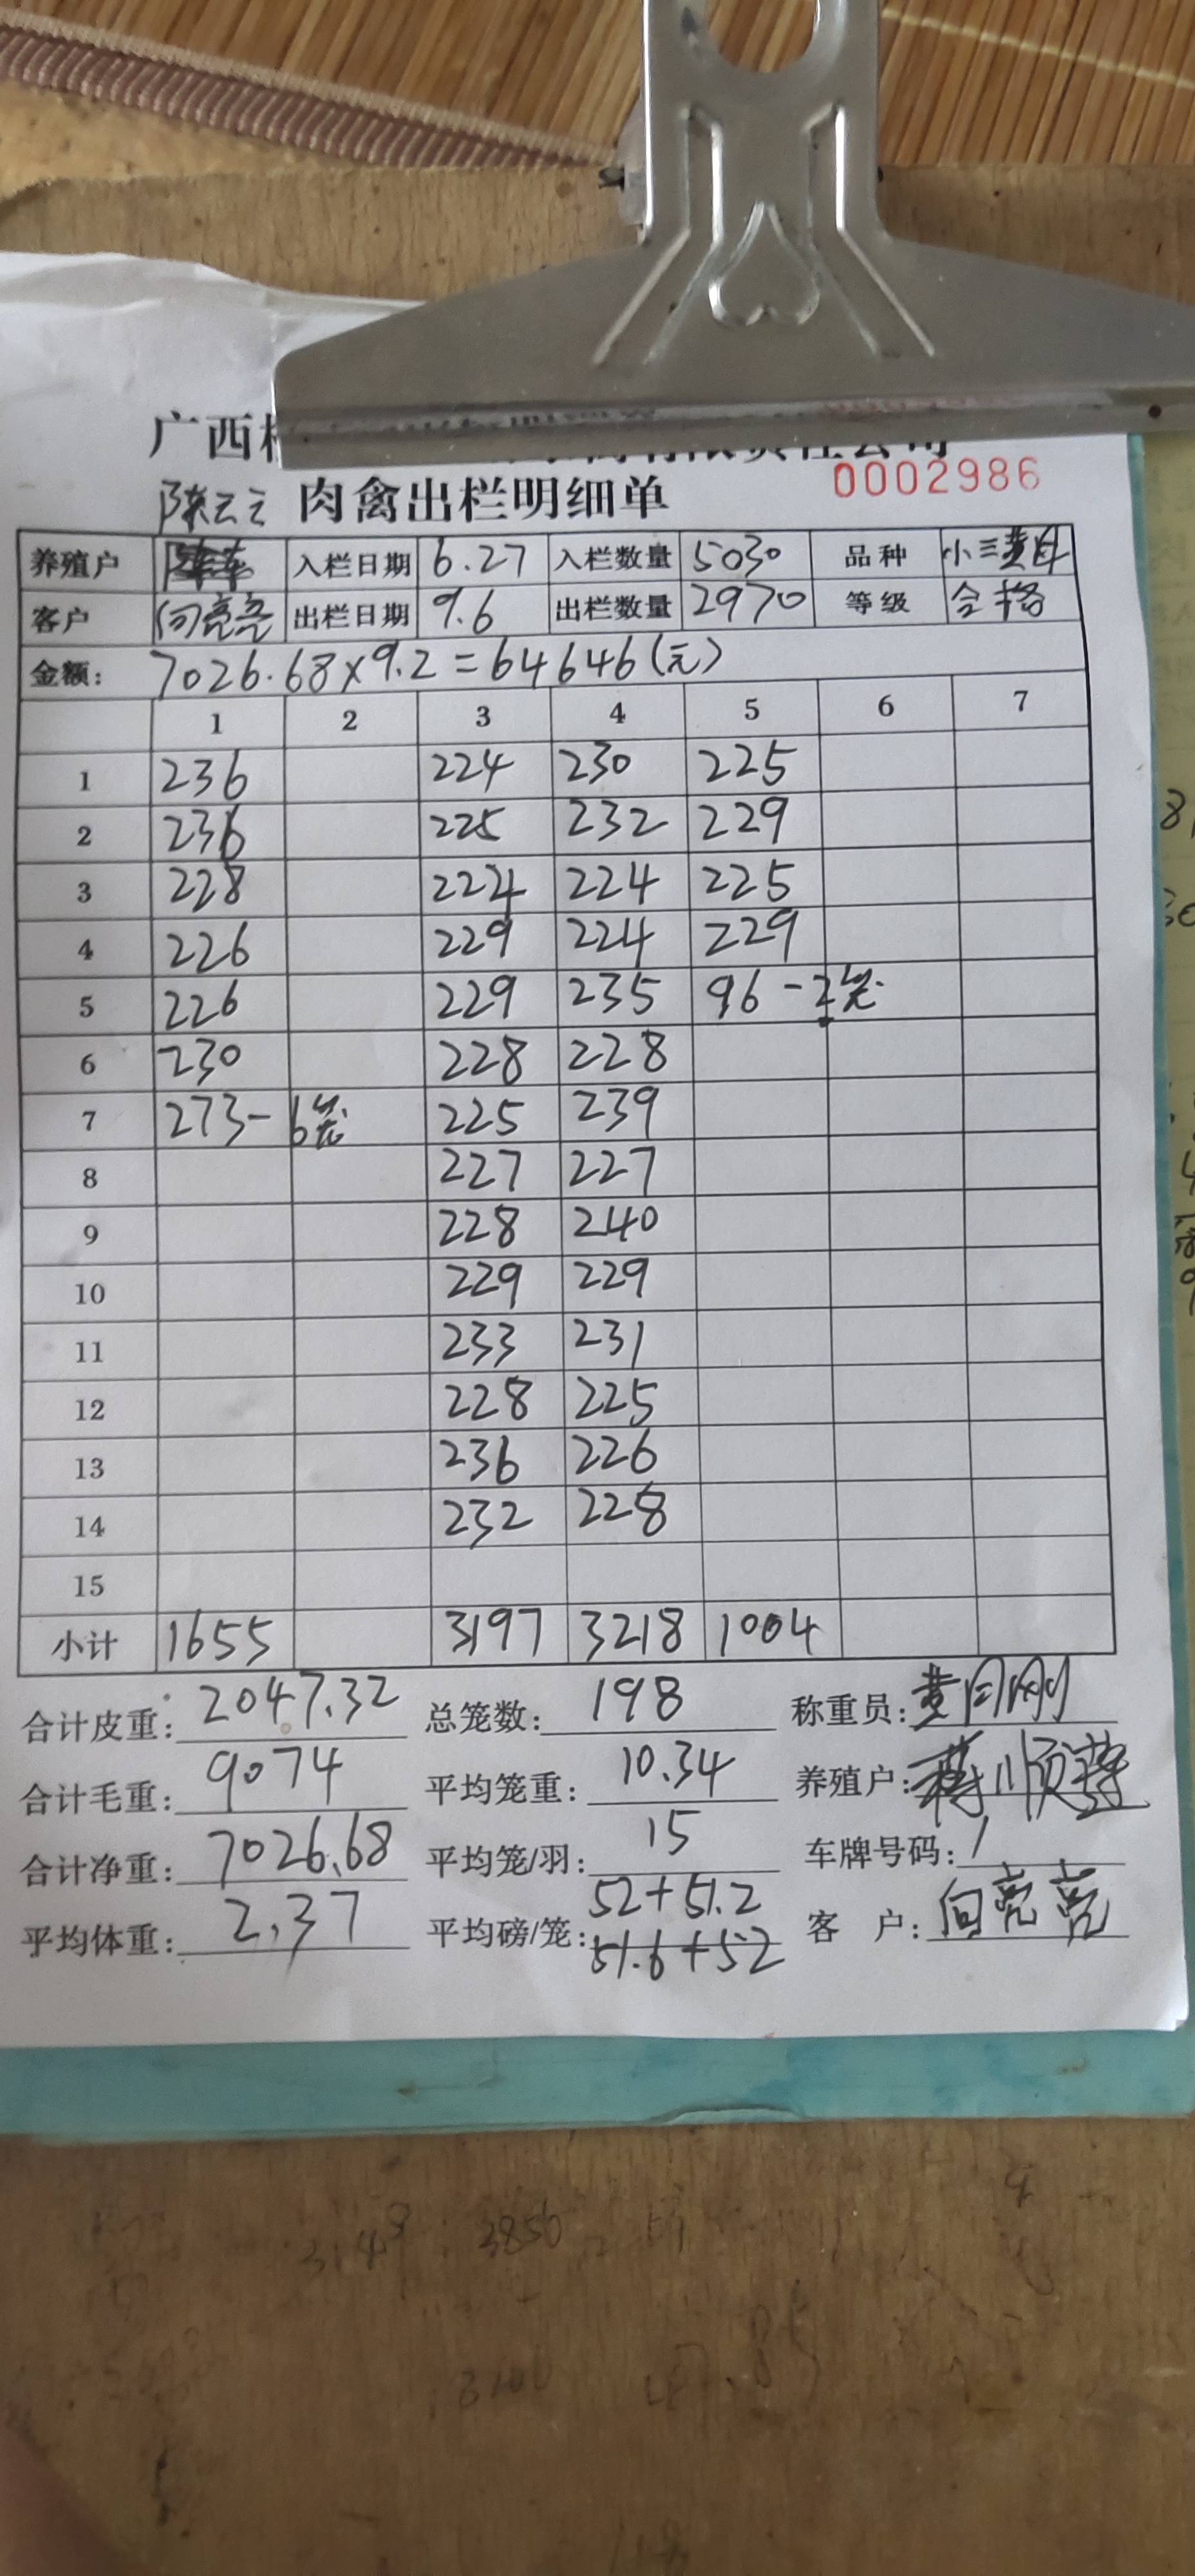 广西
有限责任公司
0002986
陈云云 肉禽出栏明细单
养殖户 入栏日期 6.27 入栏数量 5030 品种 小三黄
客户 向亮亮 出栏日期 9.6 出栏数量 2970 等级 合格
金额: 7026.68×9.2=64646(元)
1 2 3 4 5 6 7
1 236 224 230 225
2 236 225 232 229
3 228 224 224 225
4 226 229 224 229
5 226 229 235 96-2笼
6 230 228 228
7 273-6笼 225 239
8 227 227
9 228 240
10 229 229
11 233 231
12 228 225
13 236 226
14 232 228
15
小计 1655 3197 3218 1004
合计皮重: 2047.32 总笼数: 198 称重员: 黄同刚
合计毛重: 9074 平均笼重: 10.34 养殖户:
合计净重: 7026.68 平均笼/羽: 15 车牌号码: /
平均体重: 2.37 平均磅/笼: 52+51.2 客 户: 向亮亮
51.6+52